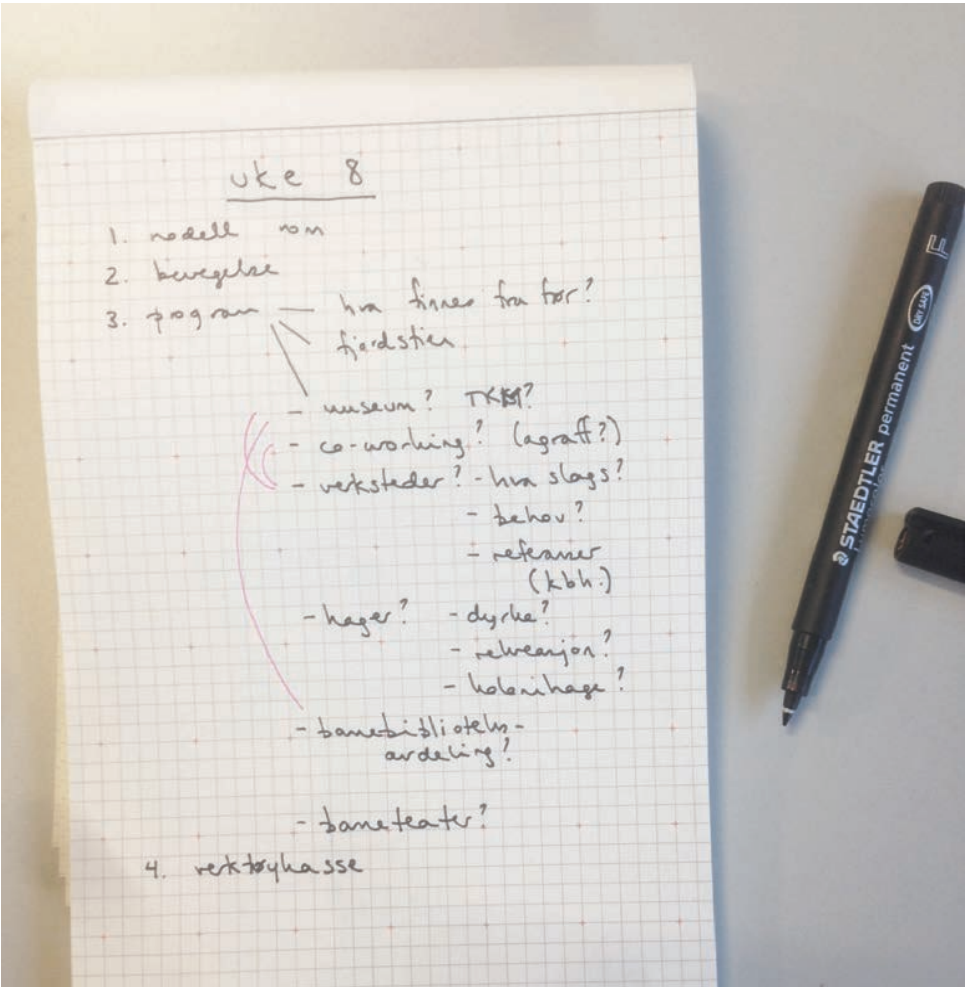 uke 8
1. modell rom
2. bevegelse
3. program — hva finnes fra før?
fjordstien
- museum? TKM?
- co-working? (agraff?)
- verksteder? - hva slags?
- behov?
- referanser
(kbh.)
- hager? - dyrke?
- rekreasjon?
- kolonihage?
- barnebiblioteks-
avdeling?
- barneteater?
4. verktøykasse
STAEDTLER permanent
DRY SAFE
F